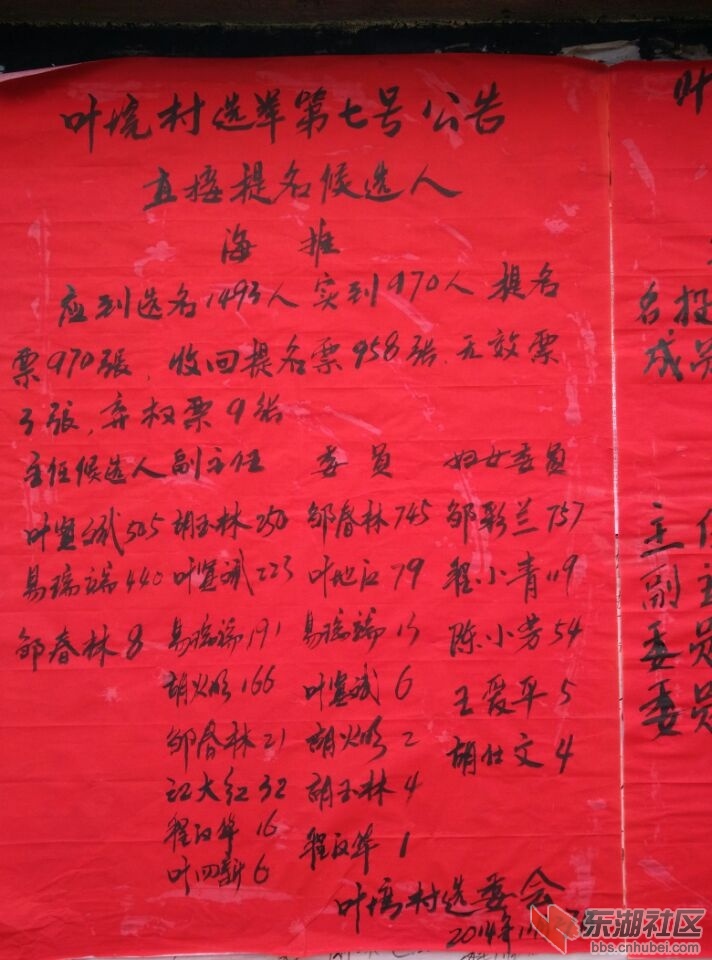 叶塆村选举第七号公告
直接提名候选人
海推
应到选名1493人 实到970人 提名
票970張,收回提名票958张,无效票
3張,弃权票9张
主任候选人 副主任 委员 妇女委员
叶宽斌505 胡玉林250 邹春林745 邹彩兰757
易瑞端440 叶宽斌223 叶地江79 程小青119
邹春林8 易瑞端191 易瑞端13 陈小芳54
胡火明166 叶宽斌6 王爱平5
邹春林21 胡火明2 胡仕文4
江大红32 胡玉林4
程汉华16 程汉华1
叶四新6
叶塆村选委会
2014年
叶
名投
成员
主任
副主
委员
委员
东湖社区
bbs.cnhubei.com